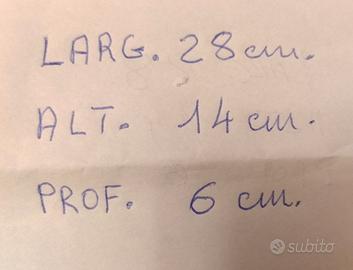 LARG. 28 cm.
ALT. 14 cm.
PROF. 6 cm.
subito